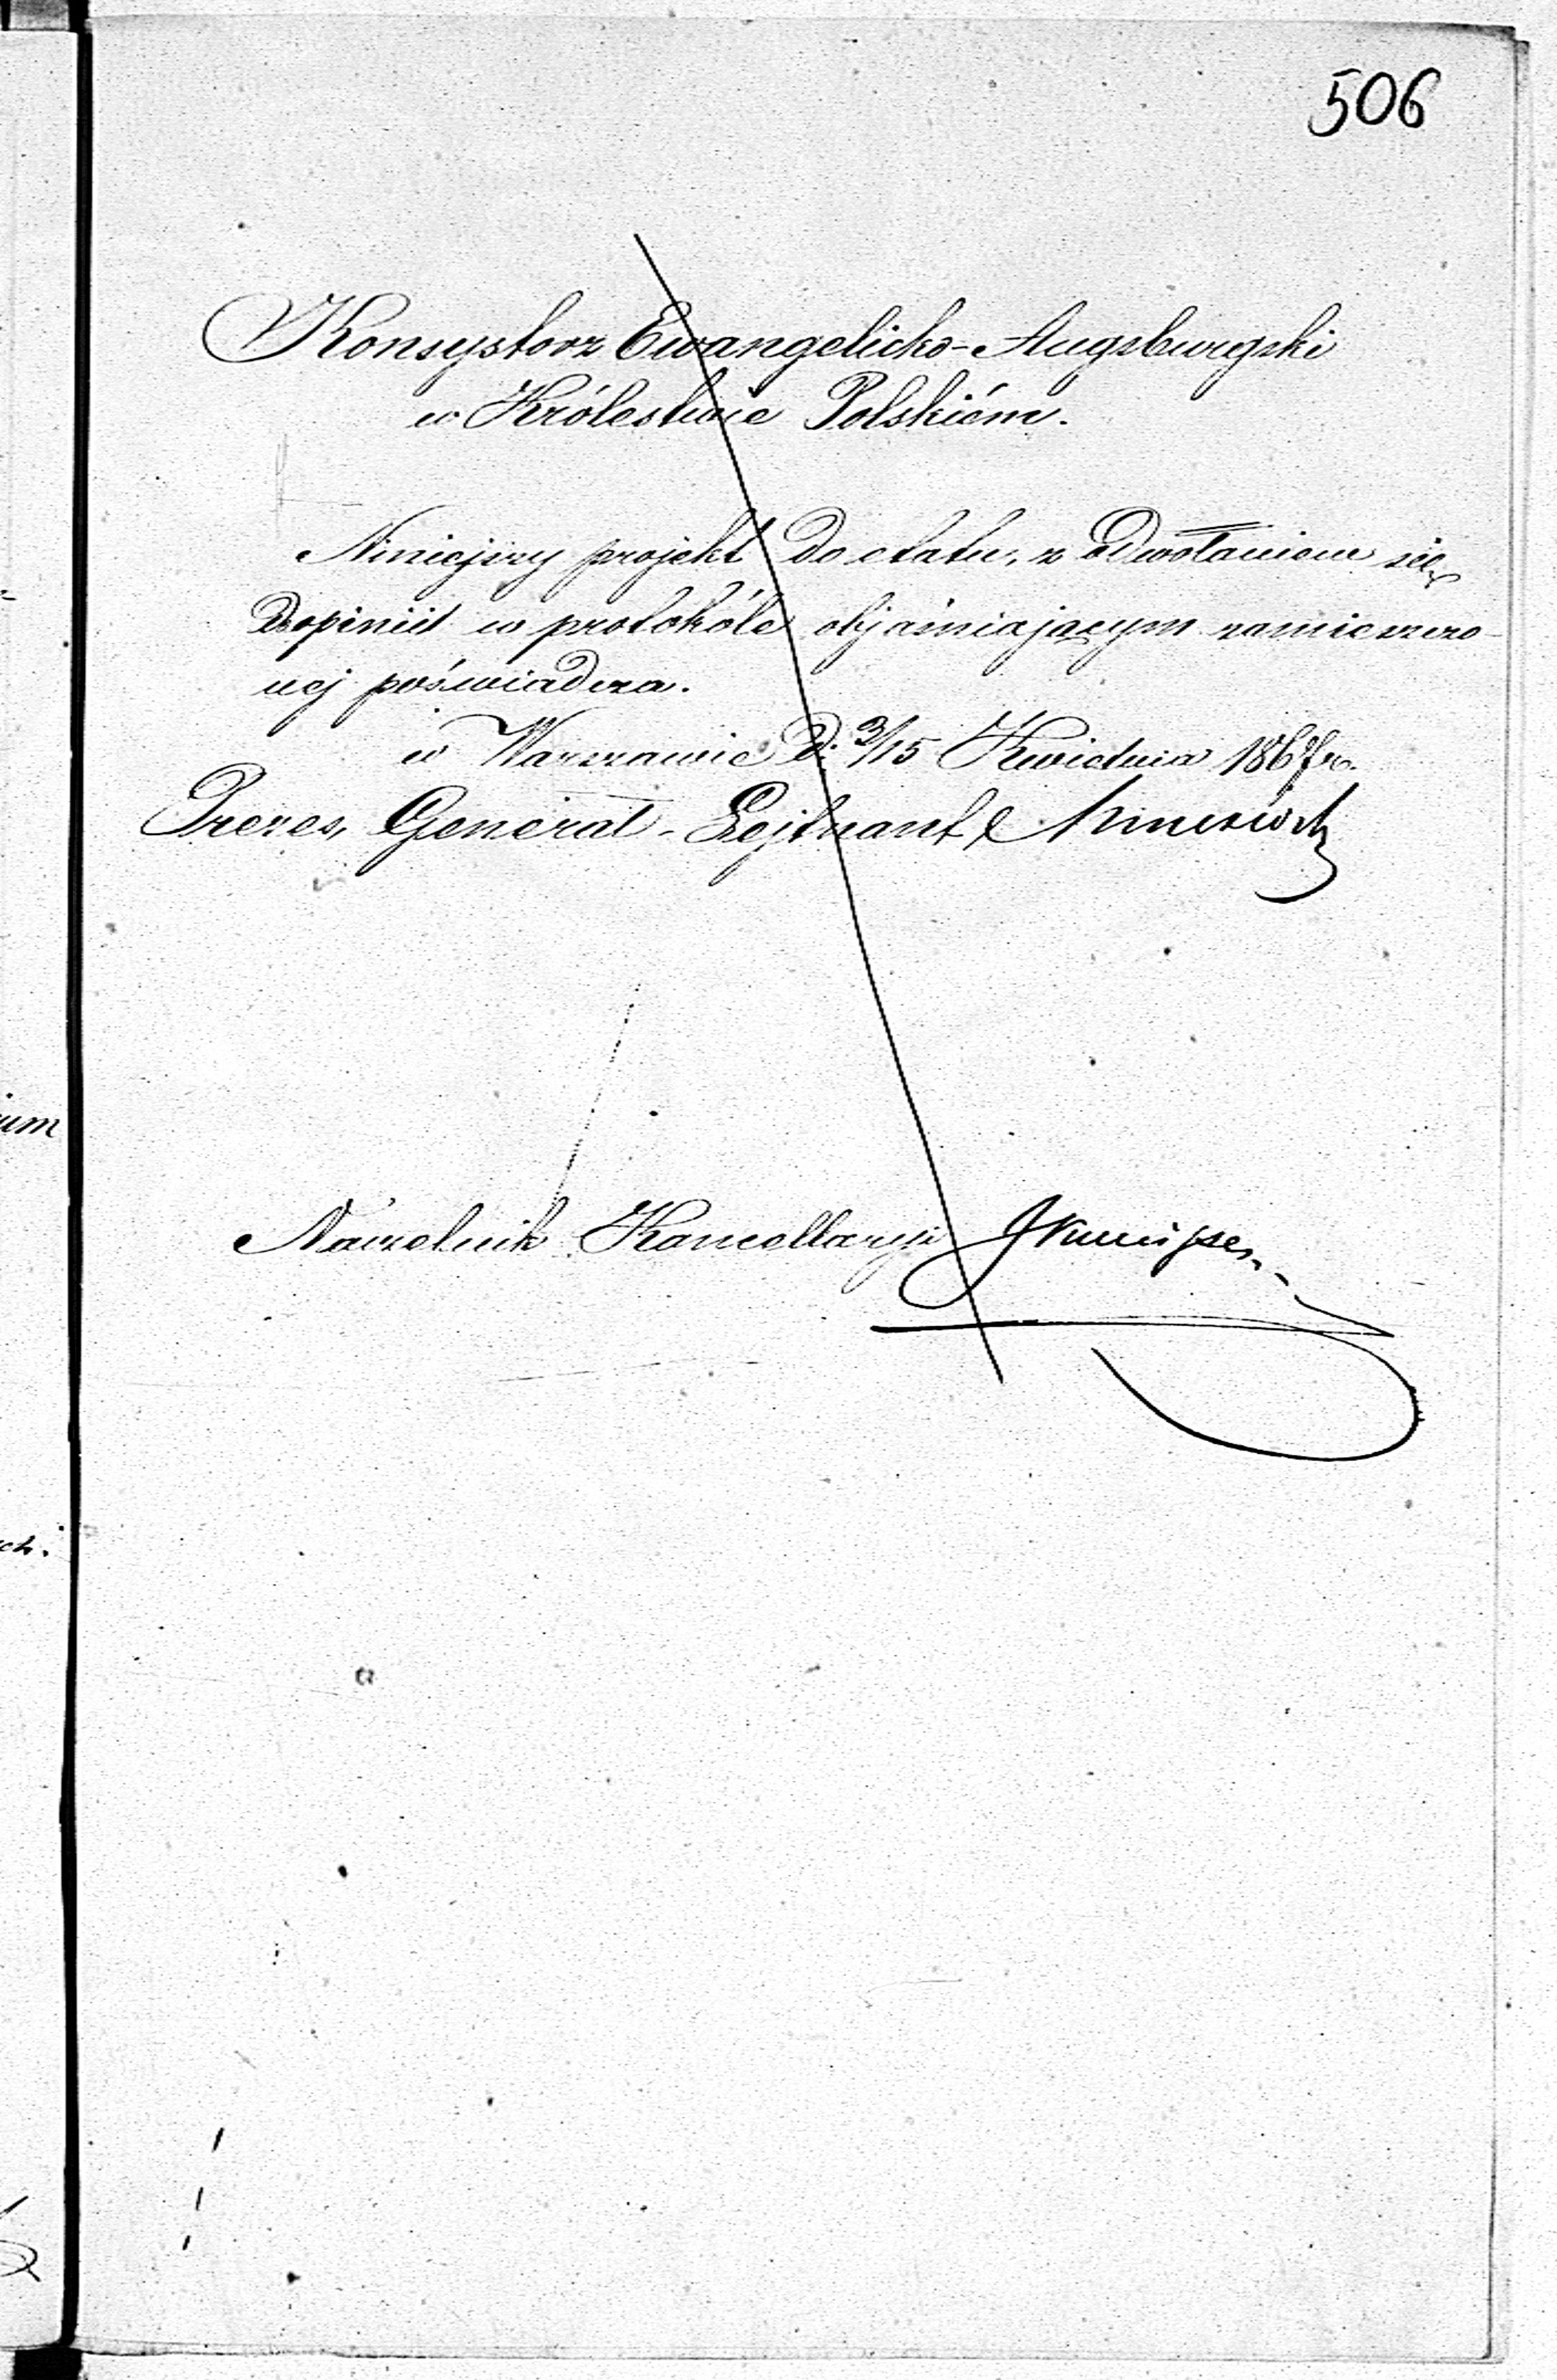 506
Konsystorz Ewangelicko-Augsburgski
w Królestwie Polskiém.
Niniejszy projekt do etatu, z odwołaniem się
do opinii w protokóle objaśniającym zamieszczo-
nej poświadcza.
w Warszawie d: 3/15 Kwietnia 1867 r.
Prezes, Generał-Lejtnant
Naczelnik Kancellaryi
um
ch.